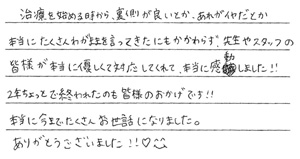 治療を始める時から、裏側が良いとか、あれがイヤだとか
本当にたくさんわがままを言ってきたにもかかわらず、先生やスタッフの
皆様が本当に優しくて対応してくれて、本当に感動しました!!
2年ちょっとで終われたのも皆様のおかげです!!
本当に今までたくさんお世話になりました。
ありがとうございました!!♡☺